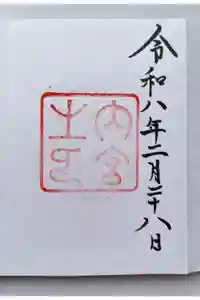 令和八年二月二十八日
内宮
之印